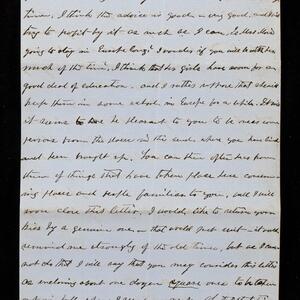 time. I think the advice is good - very good, and I'll
try to profit by it as much as I can. Is Miss
going to stay in Europe long? I wonder if you will be with her
much of the time. I think the girls have room for a
good deal of education, and I rather suppose that she'll
keep them in some school in Europe for a while.
it seems to me be pleasant to you to be near some
persons from the place in the east where you have lived
and been brought up. You can then often hear from
them of things that have taken place here concern-
ing places and people familiar to you. Well I will
soon close this letter. I would like to return your
kiss by a genuine one - that would just suit - it would
remind me strongly of the old times, but as I can
not do that I will say that you may consider this letter
as enclosing about one dozen square ones to be taken